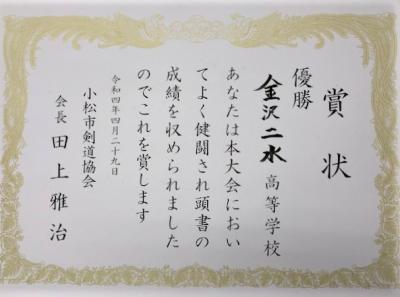 賞状
優勝
金沢二水高等学校
あなたは本大会におい
てよく健闘され頭書の
成績を収められました
のでこれを賞します
令和四年四月二十九日
小松市剣道協会
会長 田上雅治